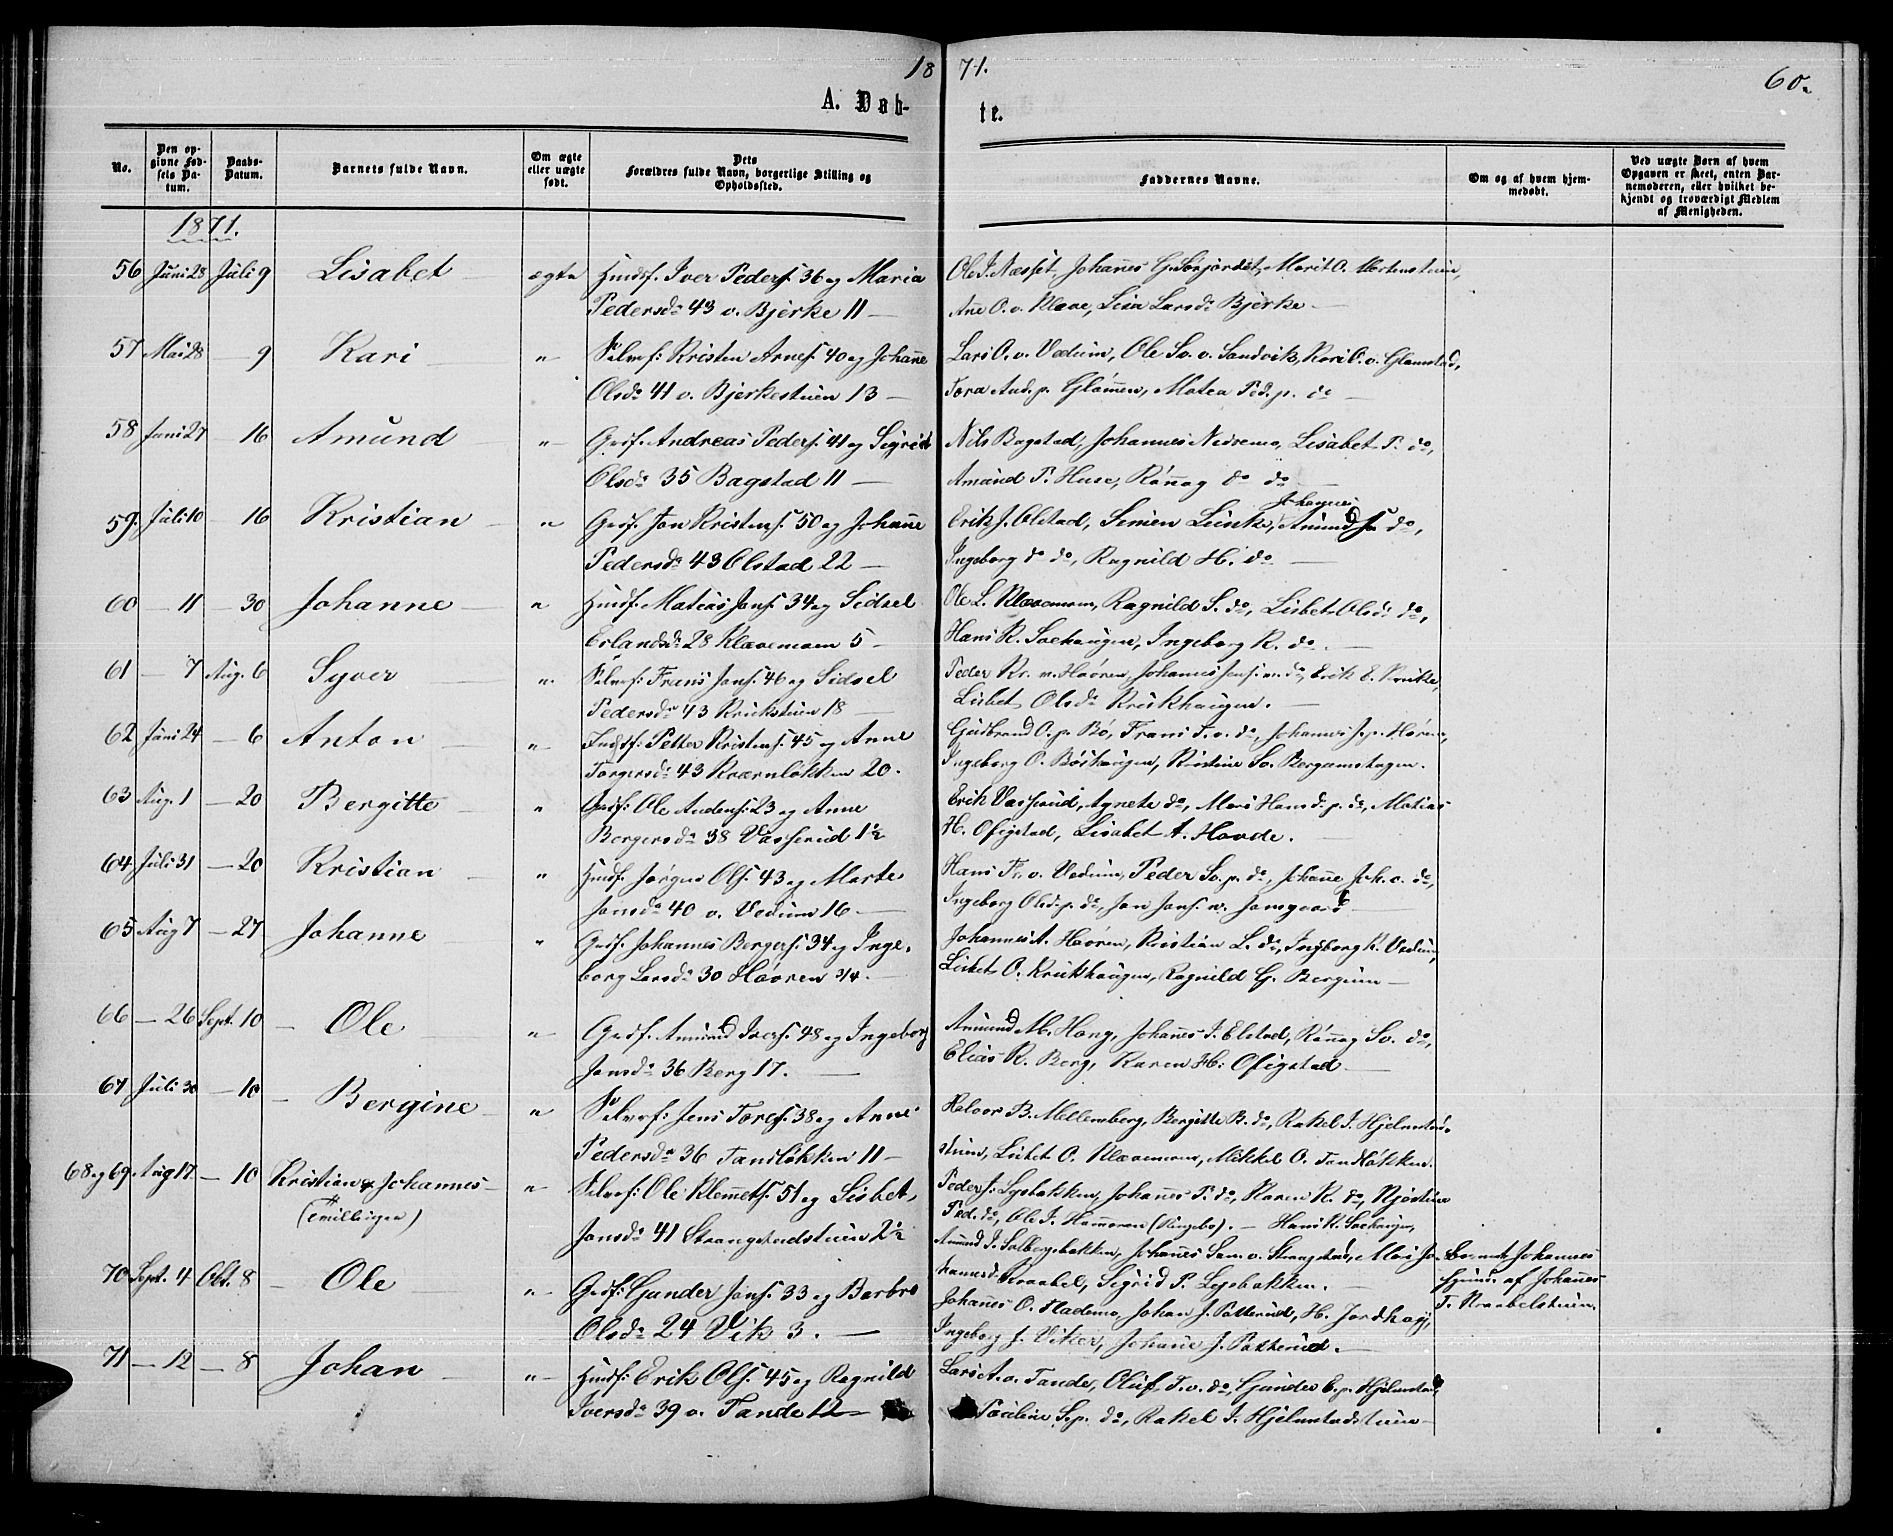 1871.
60.
A. Døbte.
No.
Den opgivne Fødsels Datum.
Daabs-Datum.
Barnets fulde Navn.
Om ægte eller uægte født.
Dets Forældres fulde Navn, borgerlige Stilling og Opholdssted.
Faddernes Navne.
Om og af hvem hjemmedøbt.
Ved uægte Børn af hvem Opgaven er skeet, enten Barnemoderen, eller hvilket bekjendt og troværdigt Medlem af Menigheden.
1871.
56 Juni 28 Juli 9 Lisabet ægte Husf. Iver Peders. 36 og Maria
Pedersdr 43 v. Bjerke 11 —
Ole J. Næsset, Johannes G. Sorjordet, Marit O. Mortenstuen,
Ane O. v. Klæve, Lisa Larsdr Bjerke —
57 Mai 28 — 9 Kari " Selvf: Kristen Arnes. 40 og Johanne
Olsdr 41 v. Bjerkestuen 13 —
Lars O. v. Vedum, Ole Sv. v. Sandvik, Kari O. v. Glamstad,
Tora And. p. Glømmen, Matea Ped. p. do —
58 Juni 27 — 16 Amund " Grdf. Andreas Peders. 41 og Sigrid
Olsdr 35 Bagstad 11 —
Nils Bagstad, Johannes Nedremo, Lisabet P. do,
Amund P. Huse, Rønnog do do —
59. Juli 10 — 16 Kristian " Grdf. Jon Kristens. 50 og Johanne
Pedersdr 43 Olstad 22 —
Johannes
Erik J. Olstad, Simen Lunke, Amund J. do,
Ingeborg do do, Ragnild H. do —
60 — 11 — 30 Johanne " Husf. Matias Jons. 34 og Sidsel
Erlandsdr 28 Klævemoen 5 —
Ole L. Klævemoen, Ragnild S. do, Lisbet Olsdr do,
Hans R. Sochaugen, Ingeborg R. do —
61 — 7 Aug. 6 Syver " Selvf: Frans Jons. 46 og Sidsel
Pedersdr 43 Krukstuen 18 —
Peder Kr. n. Høvren, Johannes Jons. n. do, Erik E. Kruke,
Lisbet Olsdr Krukhaugen. —
62 Juni 24 — 6 Anton " Indf: Petter Kristens. 45 og Anne
Torgersdr 43 Kværnløkken 20.
Gudbrand O. p. Bø, Frans T. v. do, Johannes J. p. Høvren,
Ingeborg O. Bøhaugen, Kristine Sv. Bergumshagen.
63 Aug. 1 — 20 Bergitte " Grdf: Ole Anders. 23 og Anne
Bergersdr 38 Vasserud 1½
Erik Vasrud, Agnete do, Mari Hansd. p. do, Matias
H. Ofigstad, Lisabet A. Hovde.
64 Juli 31 — 20 Kristian " Husf. Jørgen Ols. 43 og Marte
Jonsdr 40 v. Vedum 16. —
Hans Fr. v. Vedum, Peder Sv. p. do, Johanne Joh. v. do,
Ingeborg Olsd. p. do, Jon Jons. n. Jonsgaard —
65 Aug 7 — 27 Johanne " Grdf. Johannes Bergers. 34 og Inge-
borg Larsdr 30 Høvren 3/4. —
Johannes A. Høvren, Kristian L. do, Ingborg K. Vedum,
Lisbet O. Krukhaugen, Ragnild G. Bergum —
66 — 26 Sept. 10 — Ole " Grdf. Amund Ivers. 48 og Ingeborg
Jonsdr 36 Berg 17. —
Amund M. Haug, Johannes J. Elstad, Rønnog Sv. do,
Elias R. Berg, Karen H. Ofigstad —
67 Juli 30 — 10 — Bergine " Selvf: Jens Tores. 38 og Anne
Pedersdr 36 Tandløkken 11 —
Halvor B. Mellemberg, Bergitte B. do, Rakel J. Hjelmstad-
stuen, Lisbet O. Klævemoen, Mikkel O. Tandløkken.
68 og 69 Aug 17 — 10 Kristian & Johannes
(tvillinger)
" Selvf: Ole Klemmets. 51 og Lisbet
Jonsdr 41 Strangstadstuen 2½
Peders: Lysbakken, Johannes P. do, Karen R. do, Kjøstine
Ped. do, Ole J. Hammeren (Ringebo). — Hans R. Sochaugen,
Amund J. Solbergsbakken, Johannes Sim. v. Strangstad, Mari Jo-
hannesdr Kraabøl, Sigrid P. Lysbakken. —
Johannes
hjemd. af Johannes
T. Kraabølstuen.
70 Sept. 4 Okt. 8 — Ole " Grdf: Gunder Jons. 33 og Barbro
Olsdr 24 Vik 3. —
Johannes O. Flademo, Johan J. Pøtterud, H. Jordhøj,
Ingeborg J. Viker, Johanne J. Pøtterud. —
71 — 12 — 8 Johan " Husf: Erik Ols. 45 og Ragnild
Iversdr 39 v. Tande 12 —
Lars A. v. Tande, Oluf T. v. do, Gunder E. p. Hjelmstad,
Pauline Sv. p. do, Rakel J. Hjelmstadstuen —